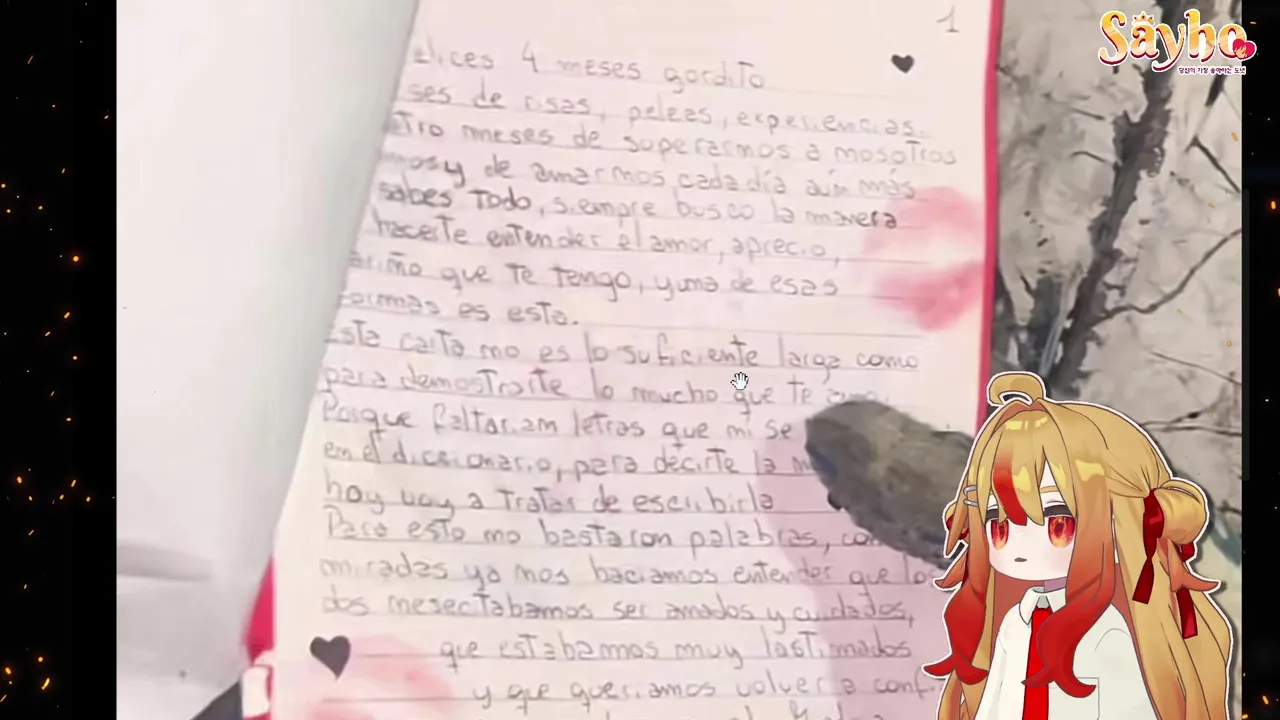 1
elices 4 meses gordito
ses de risas, peleas, experiencias.
tro meses de superarmos a mosotros
mosy de amarmos cada día aún más
sabes todo, siempre busco la manera
hacerte entender el amor, aprecio,
ariño que te tengo, y una de esas
formas es esta.
Esta carta mo es lo suficiente larga como
para demostrarte lo mucho que te amo.
Porque faltariam letras que mi se
en el diccionario, para decirte la
hoy voy a tratar de escribirla
Para esto mo bastaron palabras, con
miradas ya mos haciamos entender que los
dos mesecitabamos ser amados y cuidados,
que estabamos muy lastimados
y que queriamos volver a conf
Sayho